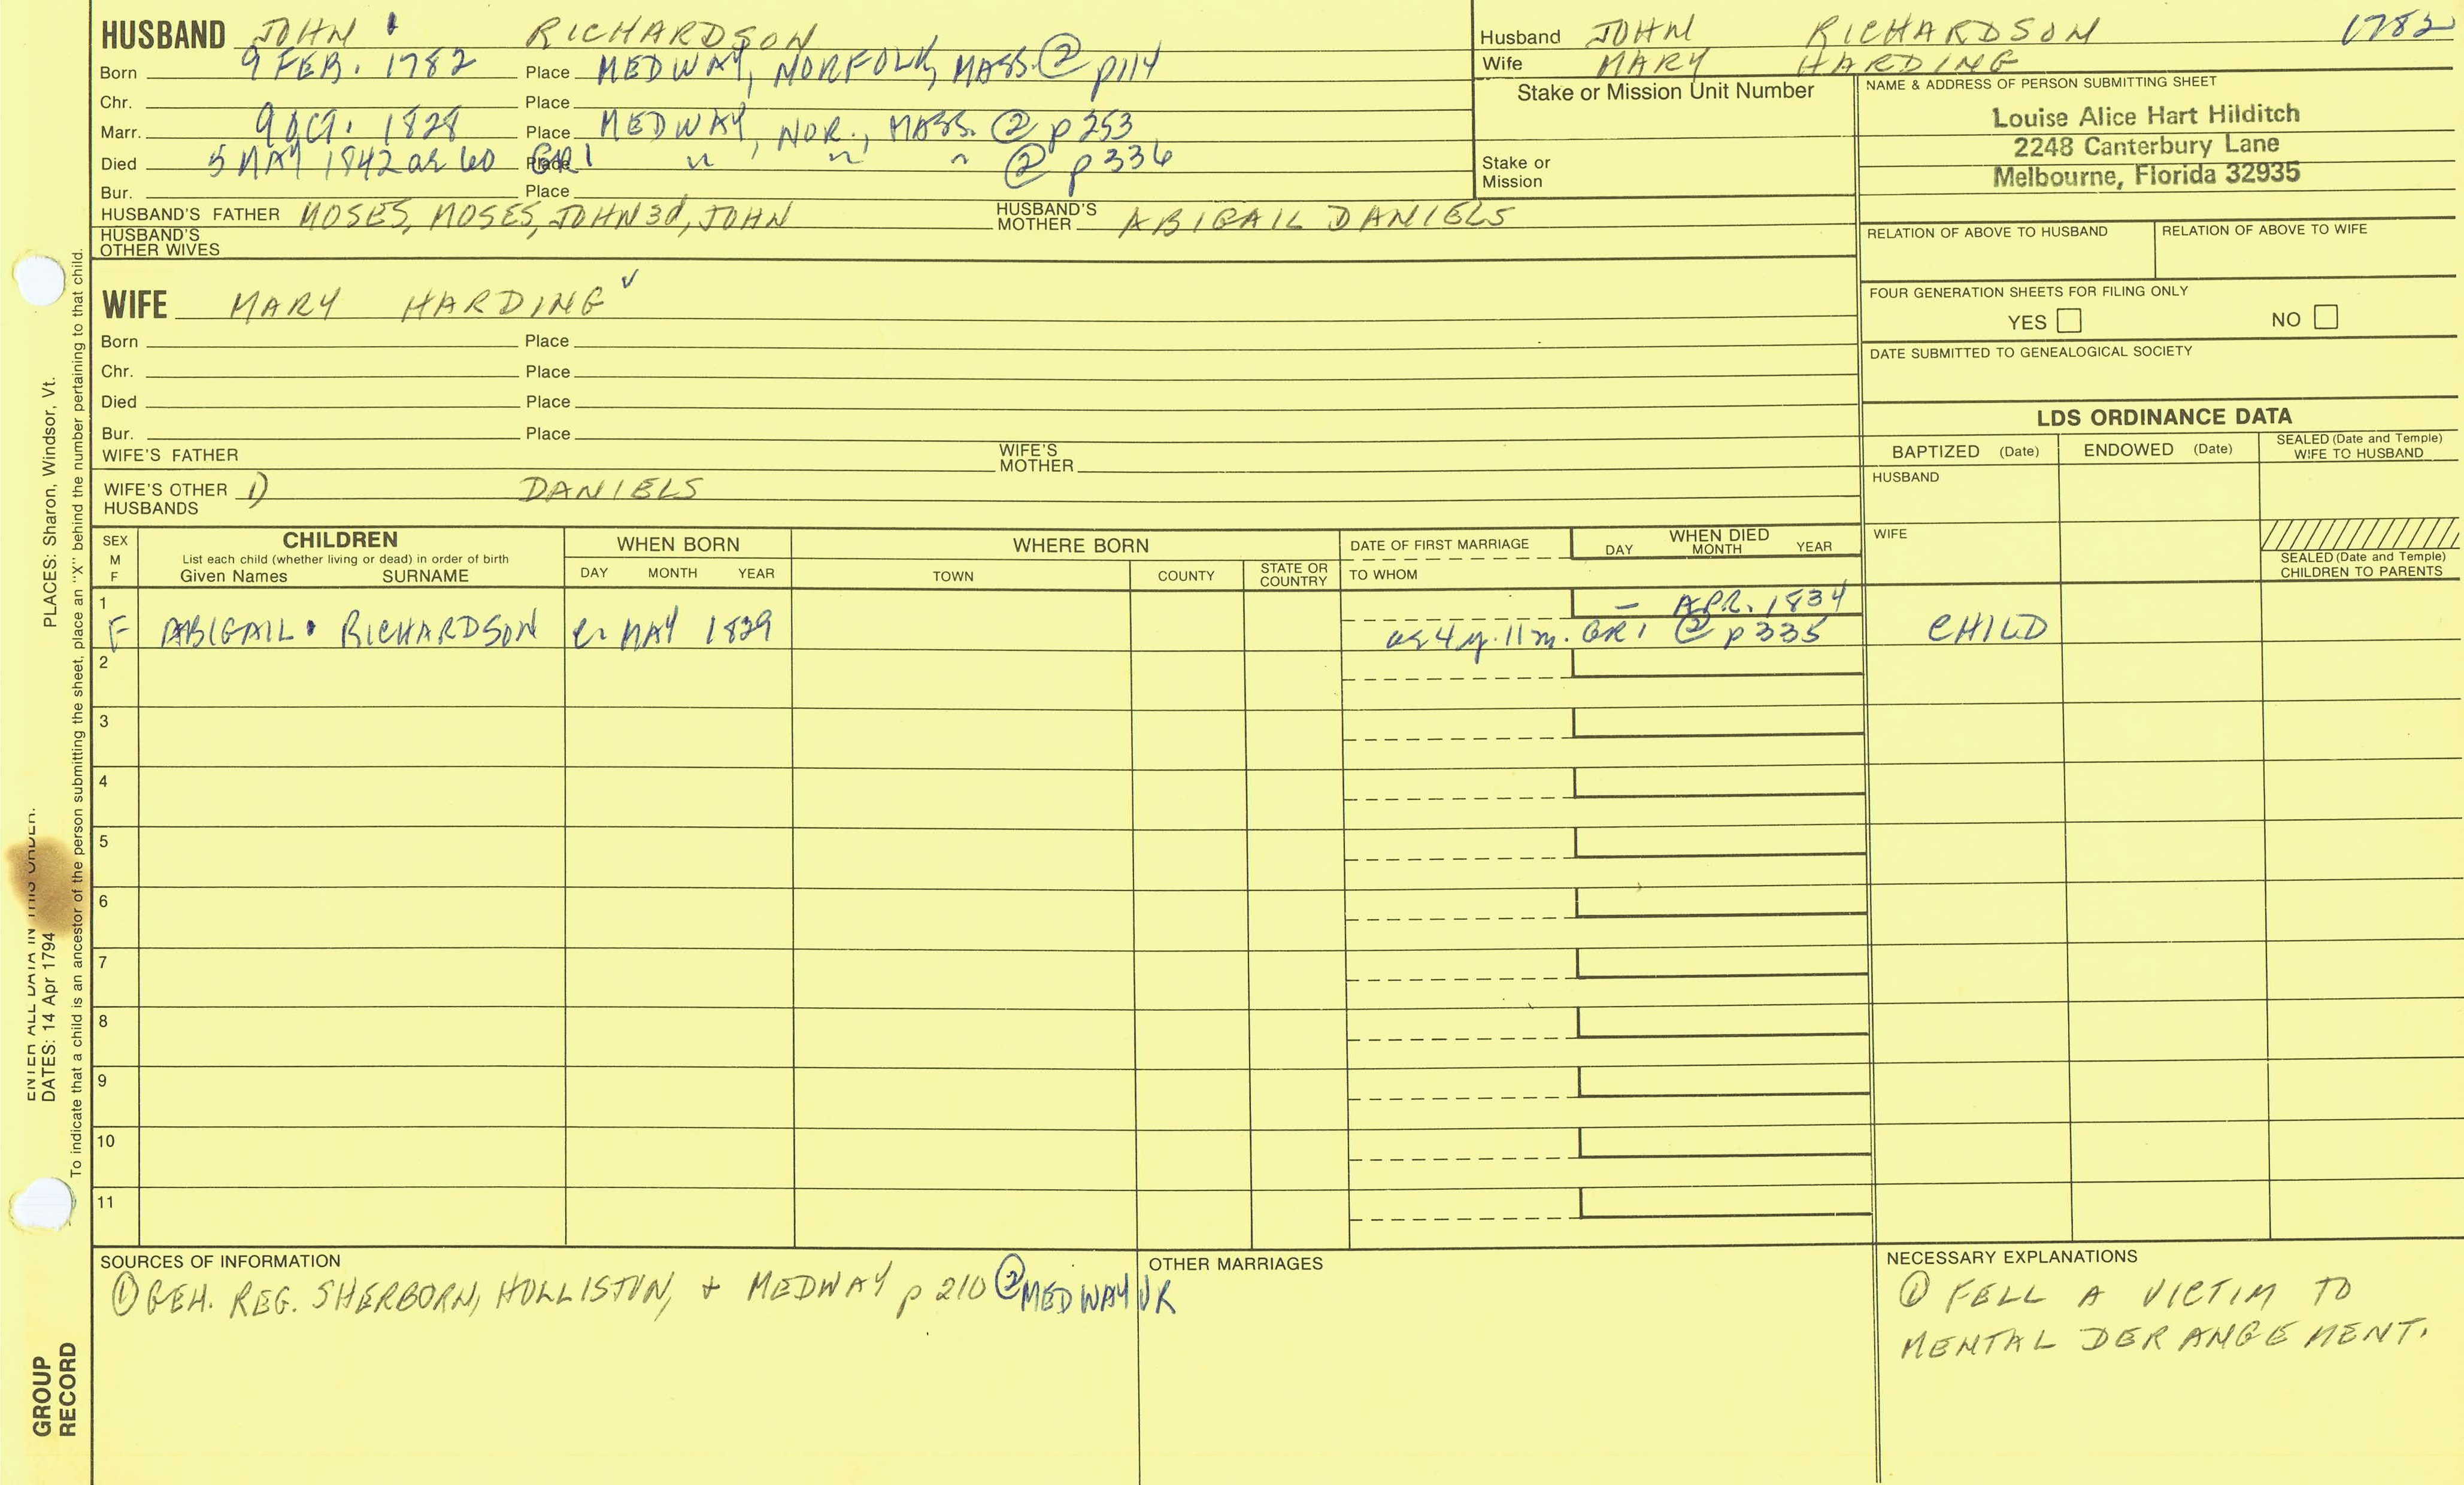 HUSBAND JOHN RICHARDSON
Born 9 FEB. 1782 Place MEDWAY, NORFOLK, MASS. ② p114
Chr. Place
Marr. 9 OCT. 1828 Place MEDWAY, NOR., MASS. ② p253
Died 5 MAY 1842 ae 60 Place GR1 " " " ② p336
Bur. Place
HUSBAND'S FATHER MOSES, MOSES, JOHN 3d, JOHN HUSBAND'S MOTHER ABIGAIL DANIELS
HUSBAND'S OTHER WIVES
Husband JOHN RICHARDSON 1782
Wife MARY HARDING
Stake or Mission Unit Number
Stake or Mission
NAME & ADDRESS OF PERSON SUBMITTING SHEET
Louise Alice Hart Hilditch
2248 Canterbury Lane
Melbourne, Florida 32935
RELATION OF ABOVE TO HUSBAND RELATION OF ABOVE TO WIFE
FOUR GENERATION SHEETS FOR FILING ONLY
YES NO
DATE SUBMITTED TO GENEALOGICAL SOCIETY
WIFE MARY HARDING ✓
Born Place
Chr. Place
Died Place
Bur. Place
WIFE'S FATHER WIFE'S MOTHER
WIFE'S OTHER HUSBANDS 1) DANIELS
LDS ORDINANCE DATA
BAPTIZED (Date) ENDOWED (Date) SEALED (Date and Temple) WIFE TO HUSBAND
HUSBAND
WIFE
SEALED (Date and Temple) CHILDREN TO PARENTS
SEX M F
CHILDREN
List each child (whether living or dead) in order of birth
Given Names SURNAME
WHEN BORN
DAY MONTH YEAR
WHERE BORN
TOWN COUNTY STATE OR COUNTRY
DATE OF FIRST MARRIAGE
TO WHOM
WHEN DIED
DAY MONTH YEAR
1 – APR. 1834
F ABIGAIL RICHARDSON c. MAY 1829 ae 4 y. 11 m. GR1 ② p335 CHILD
2
3
4
5
6
7
8
9
10
11
SOURCES OF INFORMATION
① GEH. REG. SHERBORN, HOLLISTON, + MEDWAY p 210 ② MEDWAY VR
OTHER MARRIAGES
NECESSARY EXPLANATIONS
① FELL A VICTIM TO
MENTAL DERANGEMENT.
ENTER ALL DATA IN THIS ORDER.
DATES: 14 Apr 1794 PLACES: Sharon, Windsor, Vt.
To indicate that a child is an ancestor of the person submitting the sheet, place an "X" behind the number pertaining to that child.
GROUP
RECORD